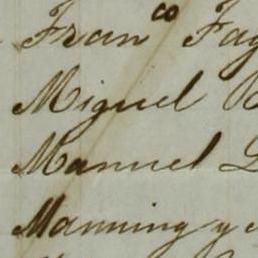 Fran co Fay
Miguel B
Manuel L
Manning y